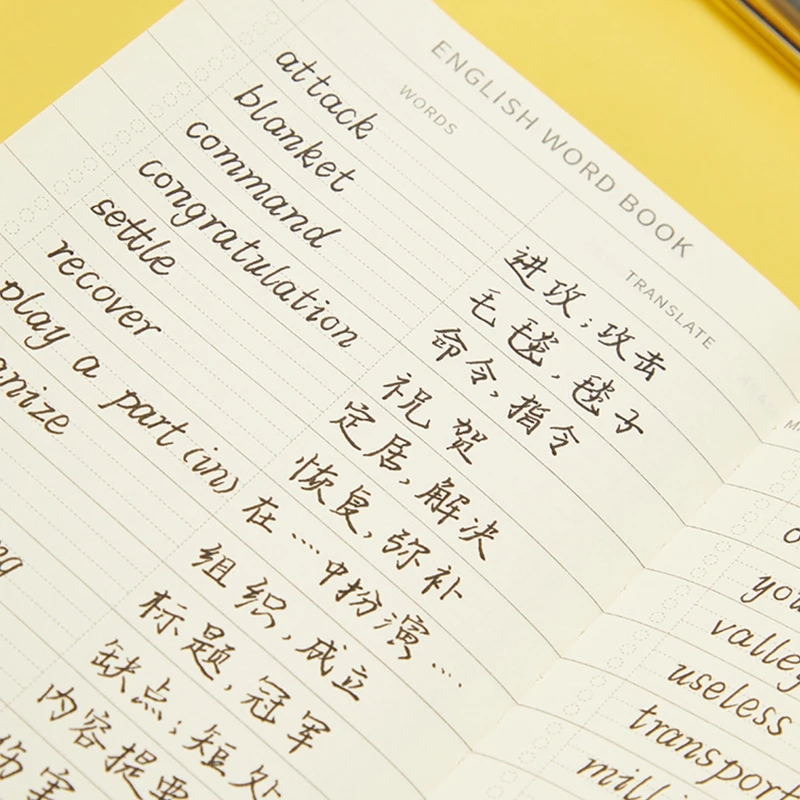 ENGLISH WORD BOOK
WORDS
TRANSLATE
attack 进攻;攻击
blanket 毛毯,毯子
command 命令,指令
congratulation 祝贺
settle 定居,解决
recover 恢复,弥补
play a part (in) 在…中扮演….
组织,成立
标题,冠军
缺点;短处
内容提要
伤害
valley
useless
transport